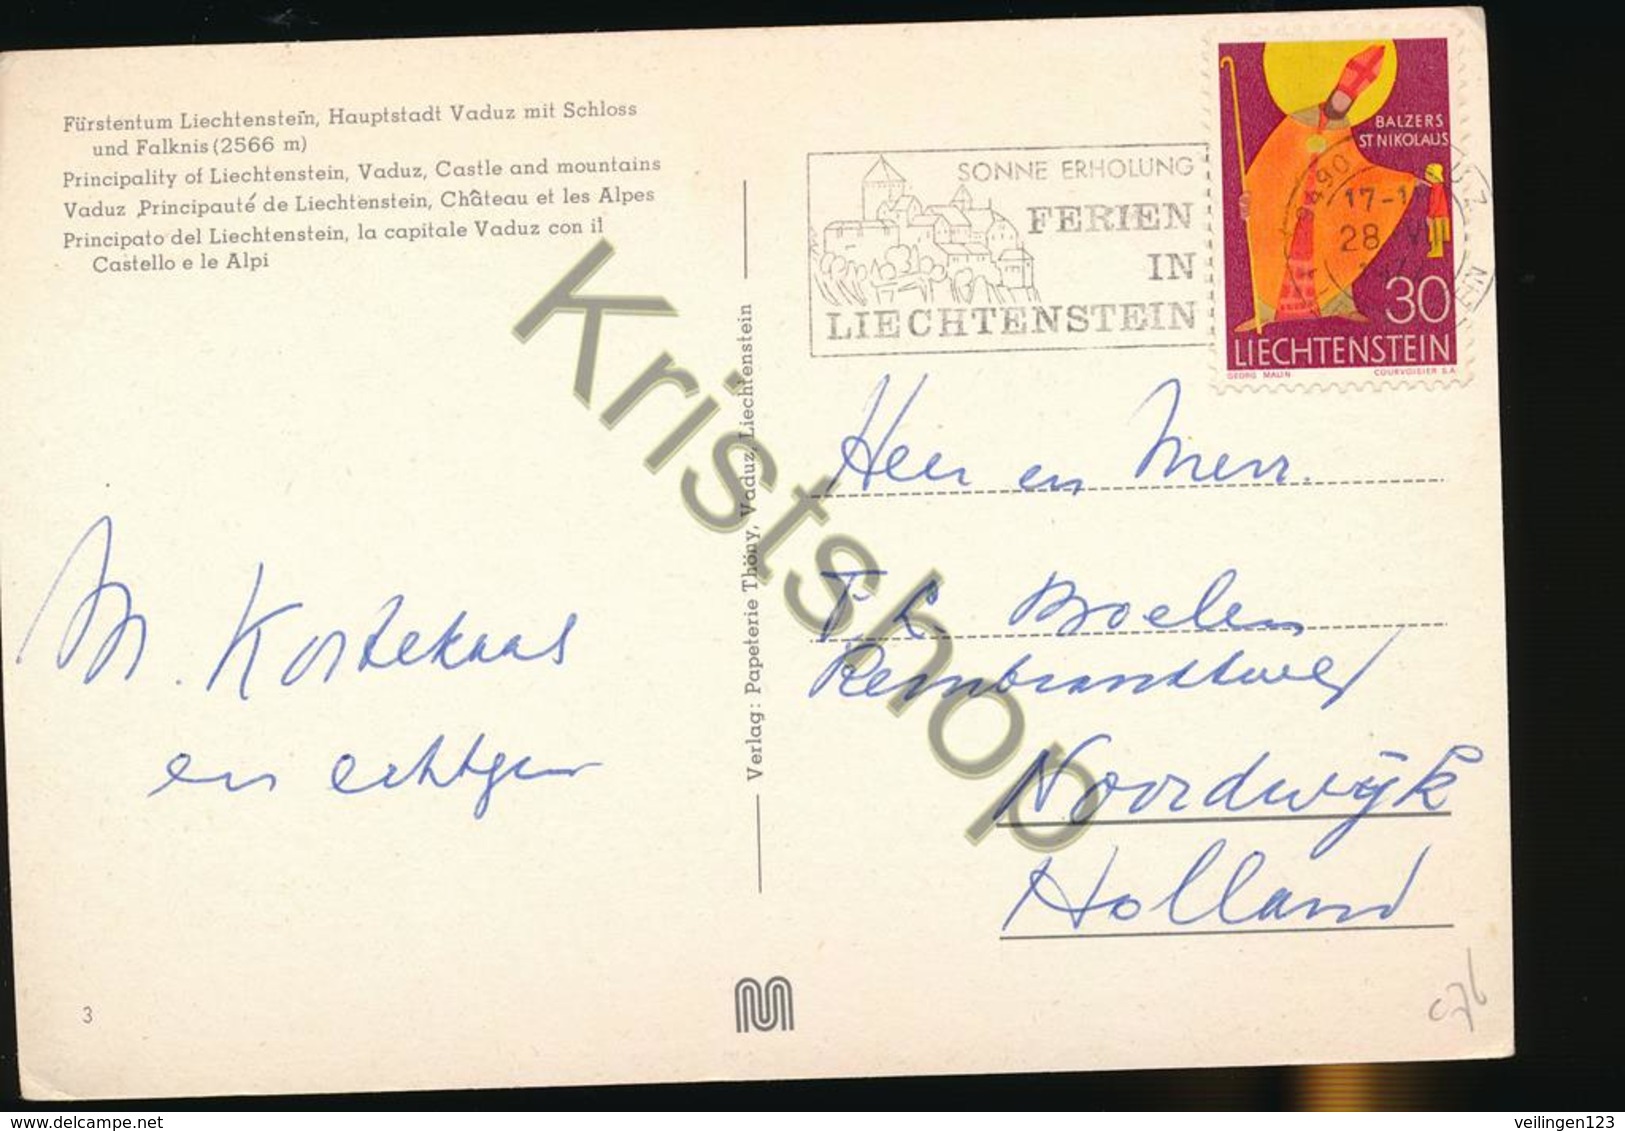 Fürstentum Liechtenstein, Hauptstadt Vaduz mit Schloss
und Falknis (2566 m)
Principality of Liechtenstein, Vaduz, Castle and mountains
Vaduz, Principauté de Liechtenstein, Château et les Alpes
Principato del Liechtenstein, la capitale Vaduz con il
Castello e le Alpi
SONNE ERHOLUNG
FERIEN
IN
LIECHTENSTEIN
BALZERS
ST NIKOLAUS
9490
17-1
28. VI
30
LIECHTENSTEIN
GEORG MALIN
COURVOISIER S.A.
Verlag: Papeterie Thöny, Vaduz, Liechtenstein
Kristshop
M. Kortekaas
en echtgen
Heer en Mevr.
Boelen
Rembrandtweg
Noordwijk
Holland
3
076
veilingen123